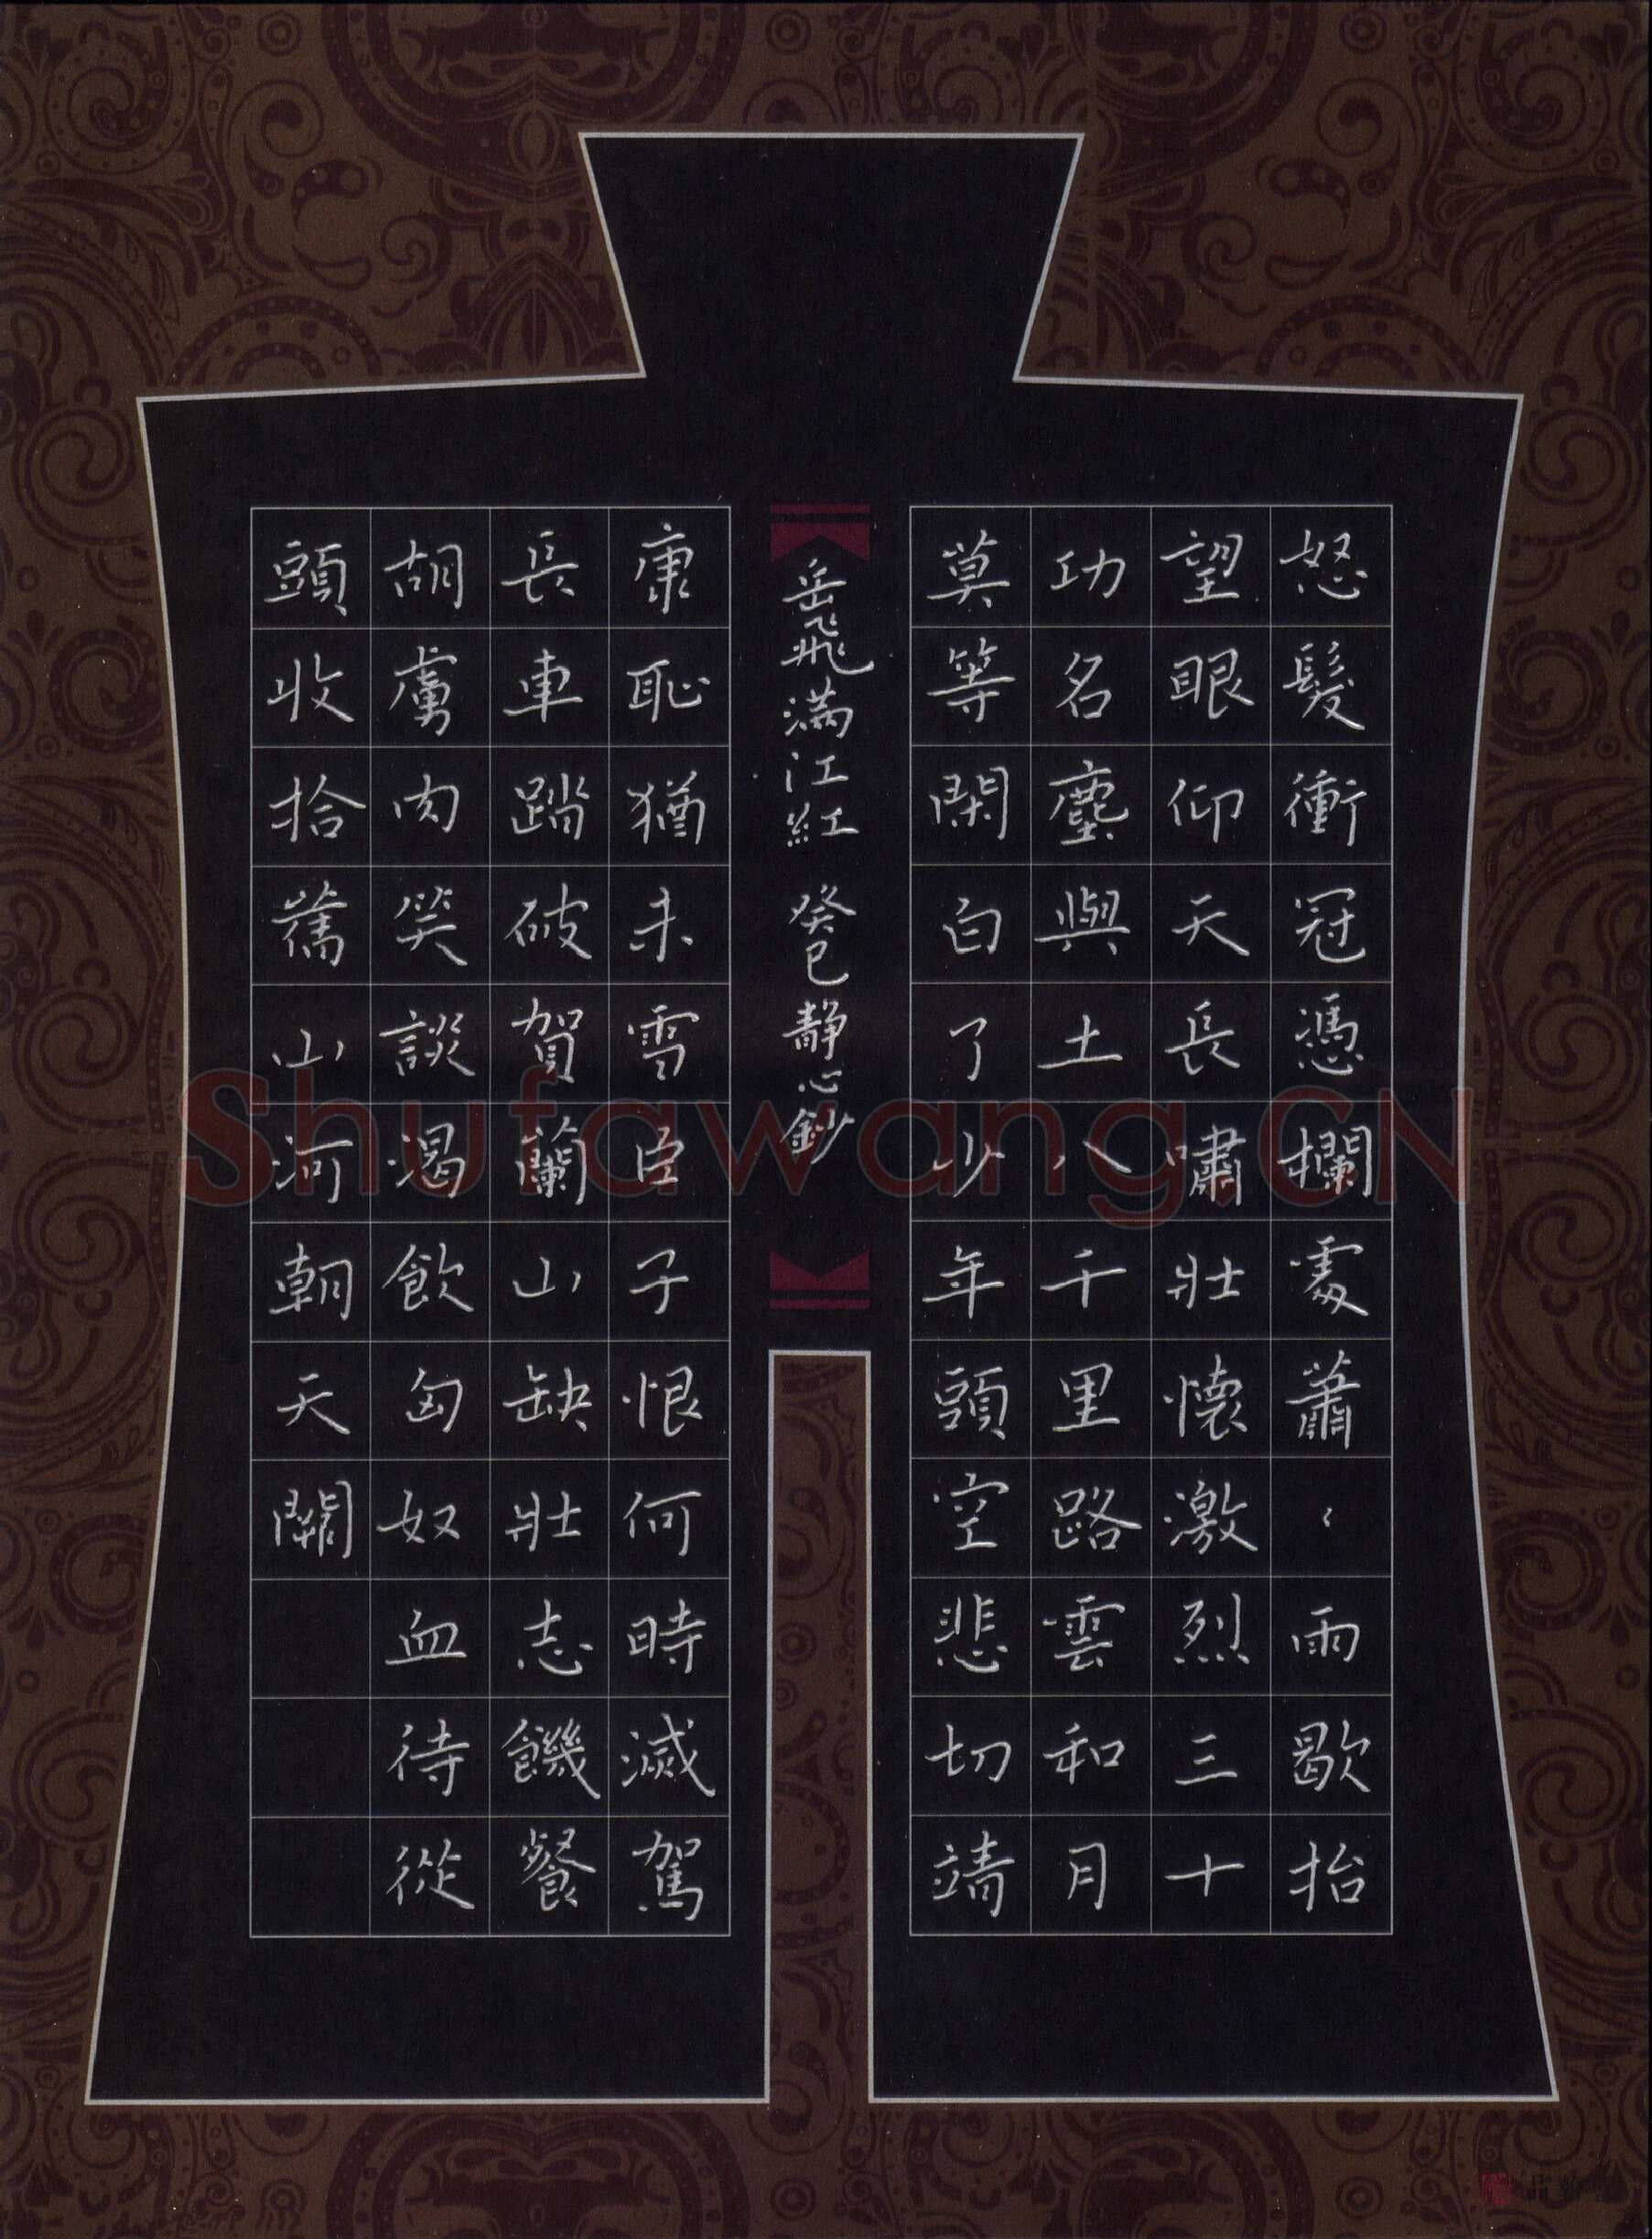 怒髮衝冠憑欄處蕭〻雨歇抬
望眼仰天長嘯壯懷激烈三十
功名塵與土八千里路雲和月
莫等閑白了少年頭空悲切靖
岳飛滿江紅 癸巳靜心鈔
康恥猶未雪臣子恨何時滅駕
長車踏破賀蘭山缺壯志饑餐
胡虜肉笑談渴飲匈奴血待從
頭收拾舊山河朝天闕
Shufawang.CN